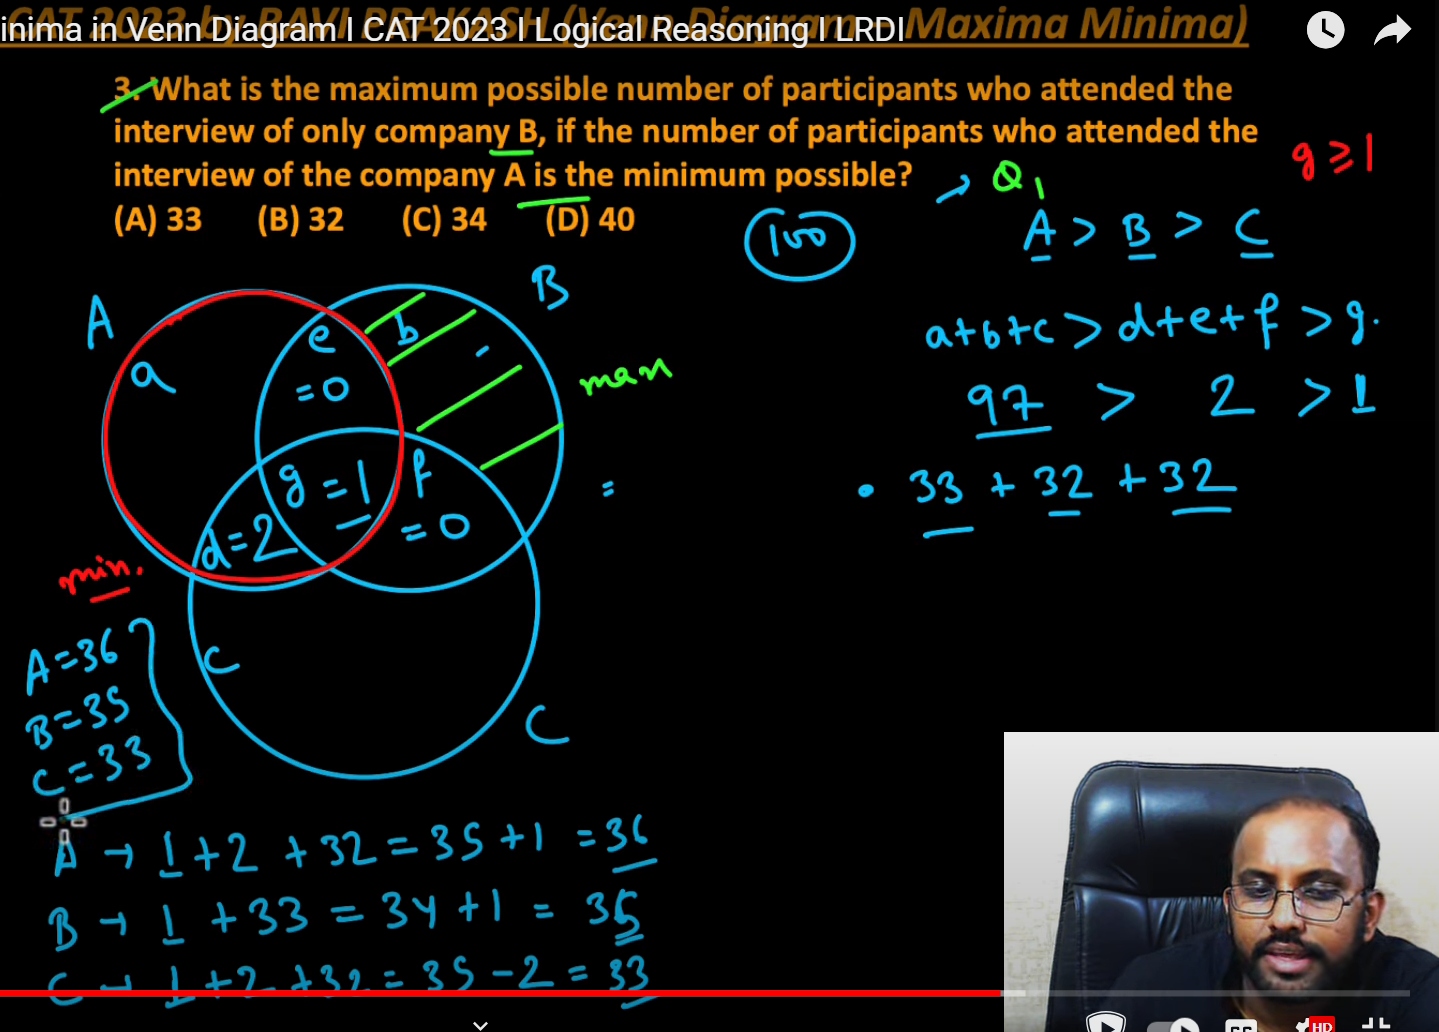 CAT 2023 by RAVI PRAKASH (Venn Diagram – Maxima Minima)
inima in Venn Diagram I CAT 2023 I Logical Reasoning I LRDI
3. What is the maximum possible number of participants who attended the
interview of only company B, if the number of participants who attended the
interview of the company A is the minimum possible?
(A) 33 (B) 32 (C) 34 (D) 40
g ≥ 1
→ Q1
100
A > B > C
a+b+c > d+e+f > g.
97 > 2 > 1
• 33 + 32 + 32
A
B
a
e
= 0
b
max
g = 1
f
= 0
d=2
=
min.
c
C
A=36
B=35
C=33
A → 1+2 +32 = 35 +1 = 36
B → 1 +33 = 34 +1 = 35
C → 1+2 +32 = 35 -2 = 33
CC
HD